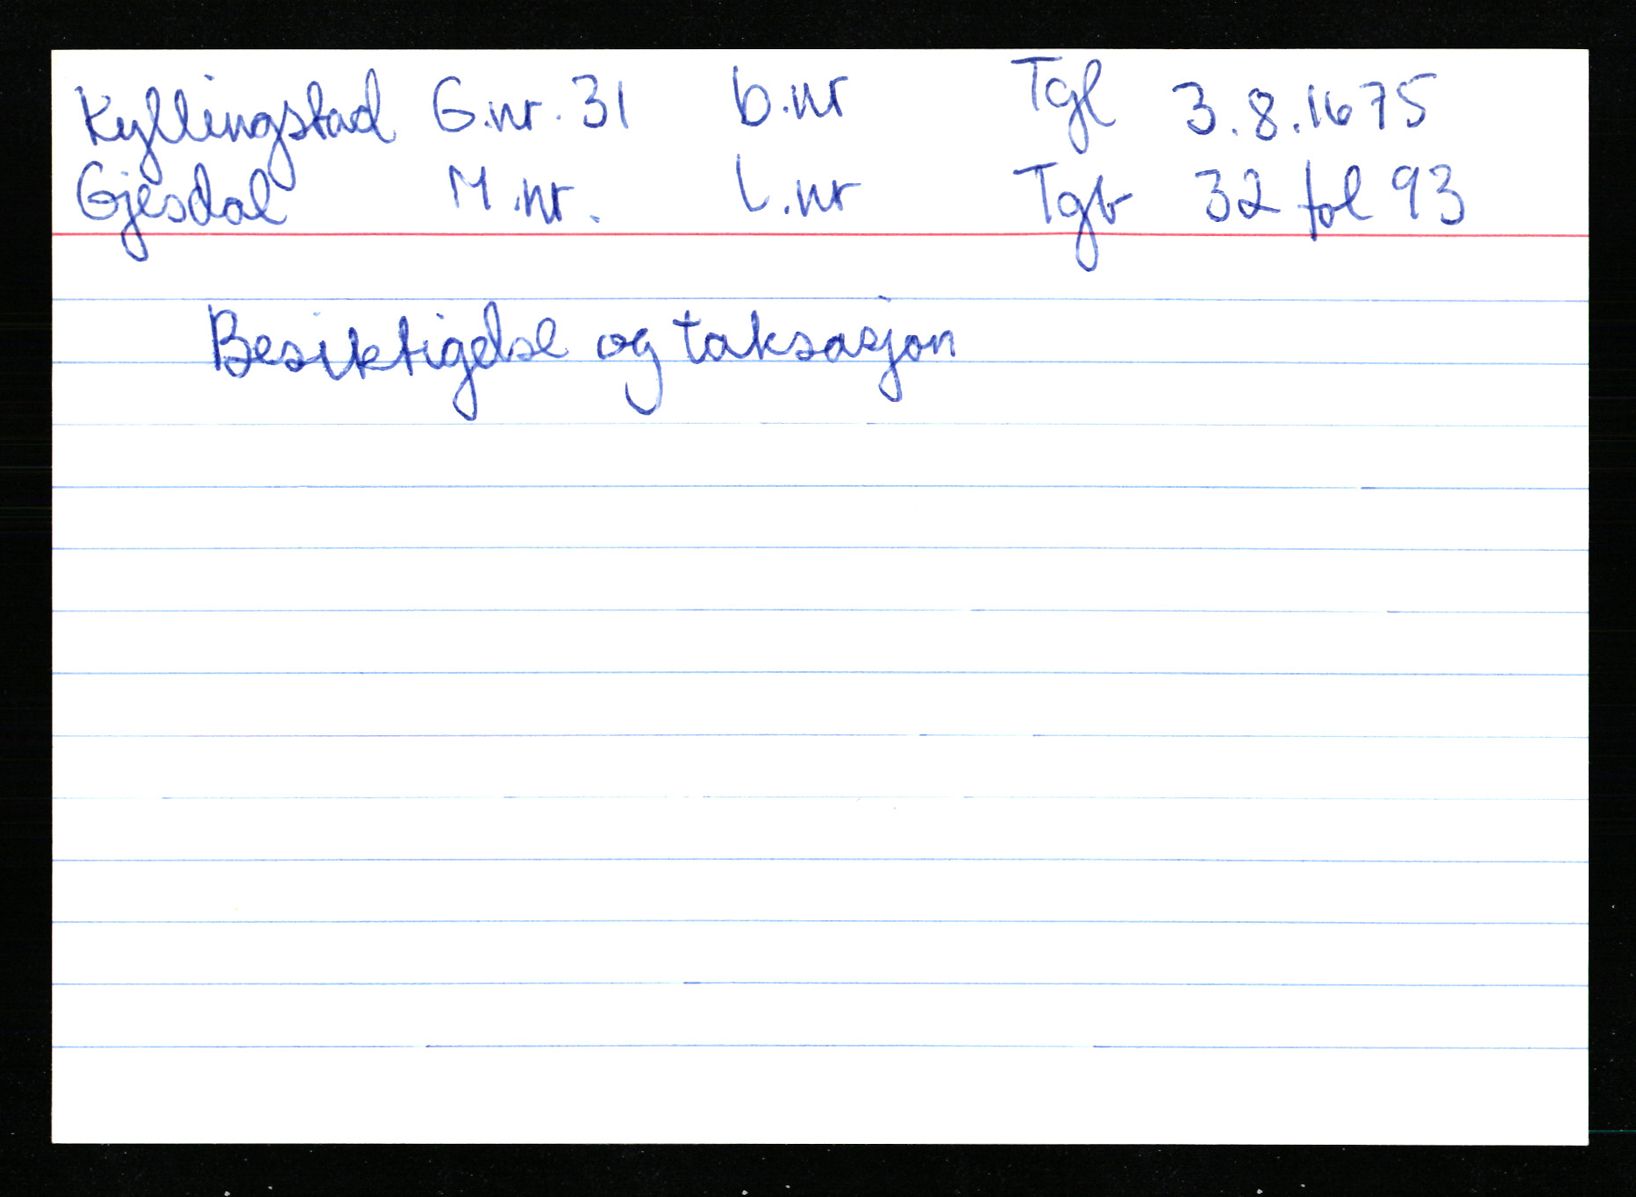 Kyllingstad G.nr. 31 b.nr Tgl 3.8.1675
Gjesdal M.nr. L.nr Tgb 32 fol 93
Besiktigelse og taksasjon